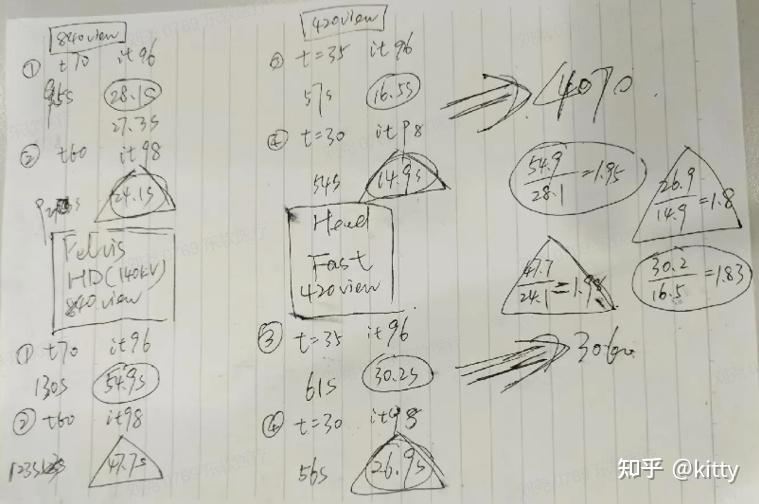 840view
① t70 it96
95s 28.1s
27.3s
② t60 it98
24.1s
Pelvis
HD(140kV)
840view
① t70 it96
130s 54.9s
② t60 it98
123s 47.7s
420view
③ t=35 it96
57s 16.5s
④ t=30 it98
54s 14.9s
Head
Fast
420view
③ t=35 it96
61s 30.2s
④ t=30 it98
56s 26.9s
4070
54.9/28.1=1.95
26.9/14.9=1.8
47.7/24.1=1.98
30.2/16.5=1.83
3060
知乎 @kitty